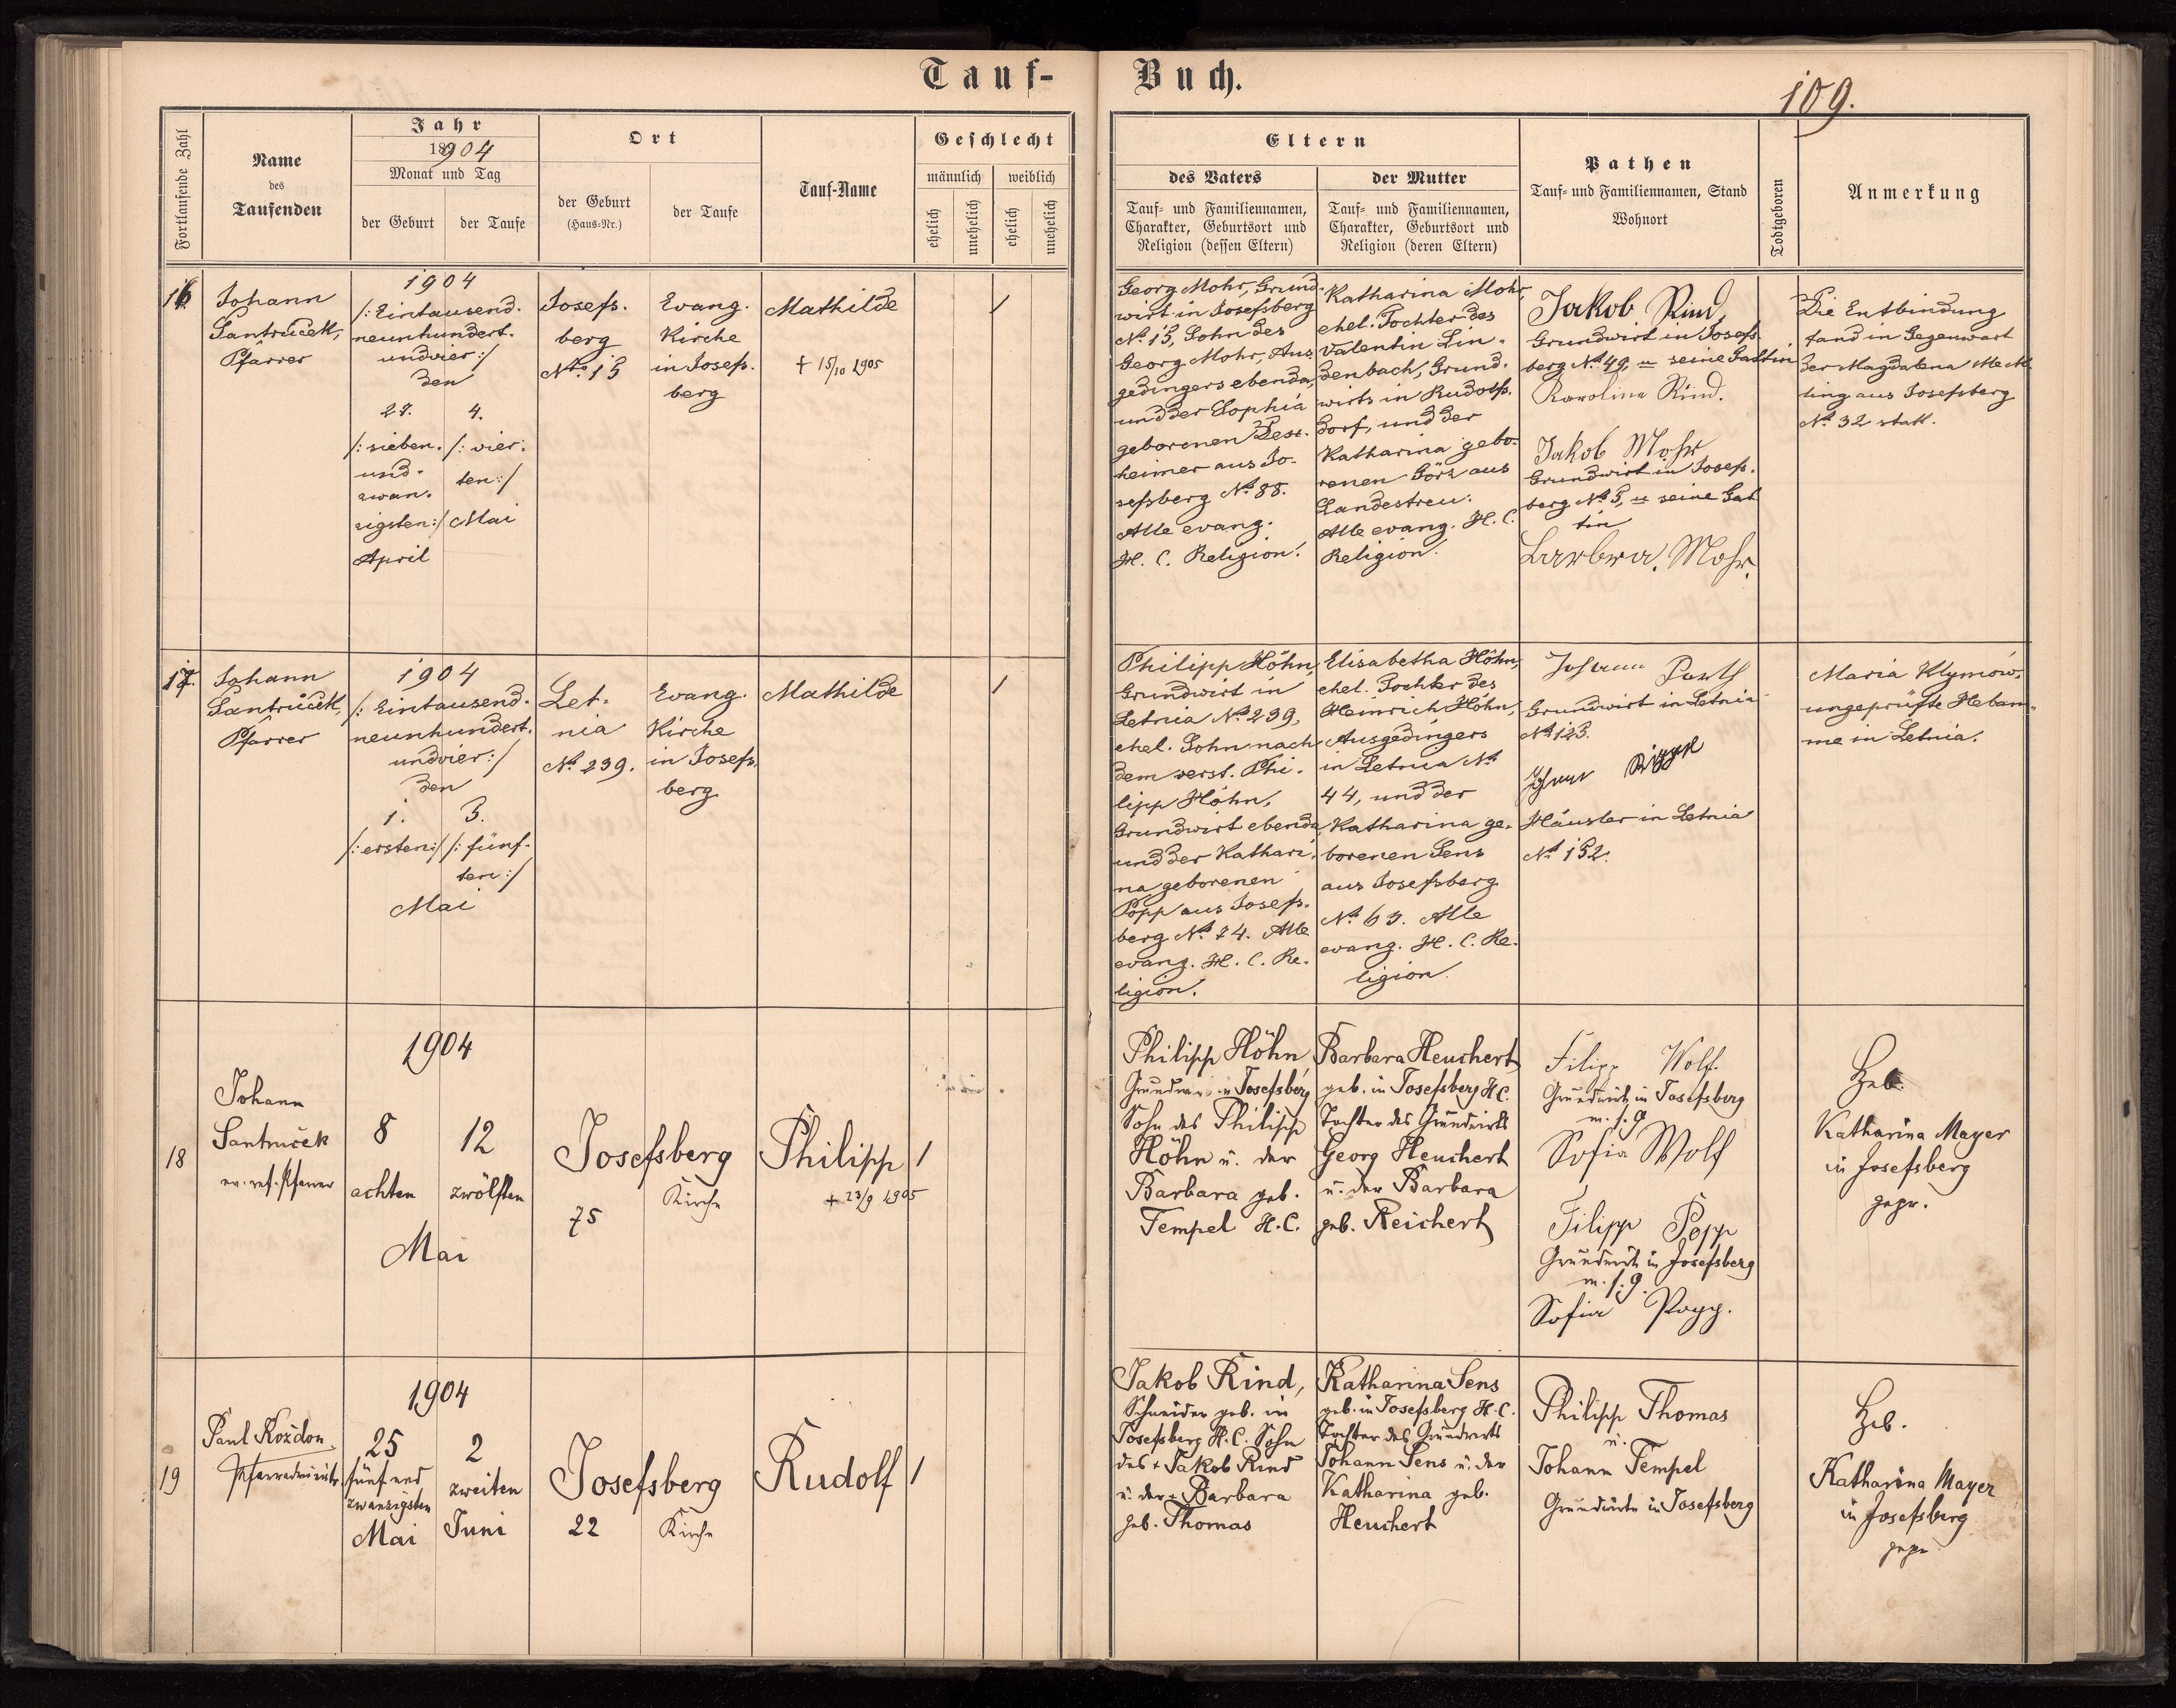 Tauf-
Buch.
109.
Fortlaufende Zahl
Name
des
Taufenden
Jahr
1904
Monat und Tag
der Geburt
der Taufe
Ort
der Geburt
(Haus-Nr.)
der Taufe
Tauf-Name
Geschlecht
männlich
weiblich
ehelich
unehelich
ehelich
unehelich
Eltern
des Vaters
Tauf- und Familiennamen,
Charakter, Geburtsort und
Religion (dessen Eltern)
der Mutter
Tauf- und Familiennamen,
Charakter, Geburtsort und
Religion (deren Eltern)
Pathen
Tauf- und Familiennamen, Stand
Wohnort
Todtgeboren
Anmerkung
16
Johann
Santrůček,
Pfarrer
1904
/: Eintausend-
neunhundert-
undvier :/
den
27.
/: sieben-
und-
zwan-
zigsten :/
April
4.
/: vier-
ten :/
Mai
Josefs-
berg
No. 15
Evang.
Kirche
in Josefs-
berg
Mathilde
+ 15/10 1905
1
Georg Mohr, Grund-
wirt in Josefsberg
No 15, Sohn des
Georg Mohr, Aus-
gedingers ebenda,
und der Sophia
geborenen
heimer aus Jo-
sefsberg No 88.
Alle evang.
H. C. Religion.
Katharina Mohr,
ehel. Tochter des
Valentin Lin-
denbach, Grund-
wirts in Rudolfs-
dorf, und der
Katharina gebo-
renen Görz aus
Landestreu.
Alle evang. H. C.
Religion.
Jakob Rind,
Grundwirt in Josefs-
berg No 49, u seine Gattin
Karolina Rind.
Jakob Mohr
Grundwirt in Josefs-
berg No 5, u seine Gat
tin
Barbra. Mohr.
Die Entbindung
fand in Gegenwart
der Magdalena
ling aus Josefsberg
No 32 statt.
17.
Johann
Santrůček,
Pfarrer
1904
/: Eintausend-
neunhundert-
undvier :/
den
1.
/: ersten :/
5.
/: fünf-
ten :/
Mai
Let-
nia
No 239.
Evang.
Kirche
in Josefs-
berg
Mathilde
1
Philipp Höhn,
Grundwirt in
Letnia No 239,
ehel. Sohn nach
dem verst. Phi-
lipp Höhn,
Grundwirt ebenda
und der Kathari-
na geborenen
Popp aus Josefs-
berg No 74. Alle
evang. H. C. Re-
ligion.
Elisabetha Höhn,
ehel. Tochter des
Heinrich Höhn,
Ausgedingers
in Letnia No
44, und der
Katharina ge-
borenen Sens
aus Josefsberg
No 63. Alle
evang. H. C. Re-
ligion.
Johann
Grundwirt in Letnia
No 123.
Häusler in Letnia
No 152.
Maria Klymów,
ungeprüfte Hebam-
me in Letnia.
18
Johann
Santruček
ev. ref. Pfarrer
1904
8
achten
12
zwölften
Mai
Josefsberg
75
Kirche
Philipp
+ 23/9 1905
1
Philipp Höhn,
Grundwirt in Josefsberg
Sohn des Philipp
Höhn u. der
Barbara geb.
Tempel H. C.
Barbara Heuchert
geb. in Josefsberg H. C.
Tochter des Grundwirts
Georg Heuchert
u. der Barbara
geb. Reichert
Filipp Wolf.
Grundwirt in Josefsberg
m. s. g.
Sofia Wolf
Filipp Popp
Grundwirt in Josefsberg
m. s. g.
Sofia Popp.
Heb.
Katharina Mayer
in Josefsberg
gepr.
19
Paul Kożdon,
Pfarradministr.
1904
25
fünf und
zwanzigsten
Mai
2
zweiten
Juni
Josefsberg
22
Kirche
Rudolf
1
Jakob Rind,
Schneider geb. in
Josefsberg H. C. Sohn
des + Jakob Rind
u. der + Barbara
geb. Thomas
Katharina Sens
geb. in Josefsberg H. C.
Tochter des Grundwirts
Johann Sens u. der
Katharina geb.
Heuchert
Philipp Thomas
u.
Johann Tempel
Grundwirte in Josefsberg
Heb.
Katharina Mayer
in Josefsberg
gepr